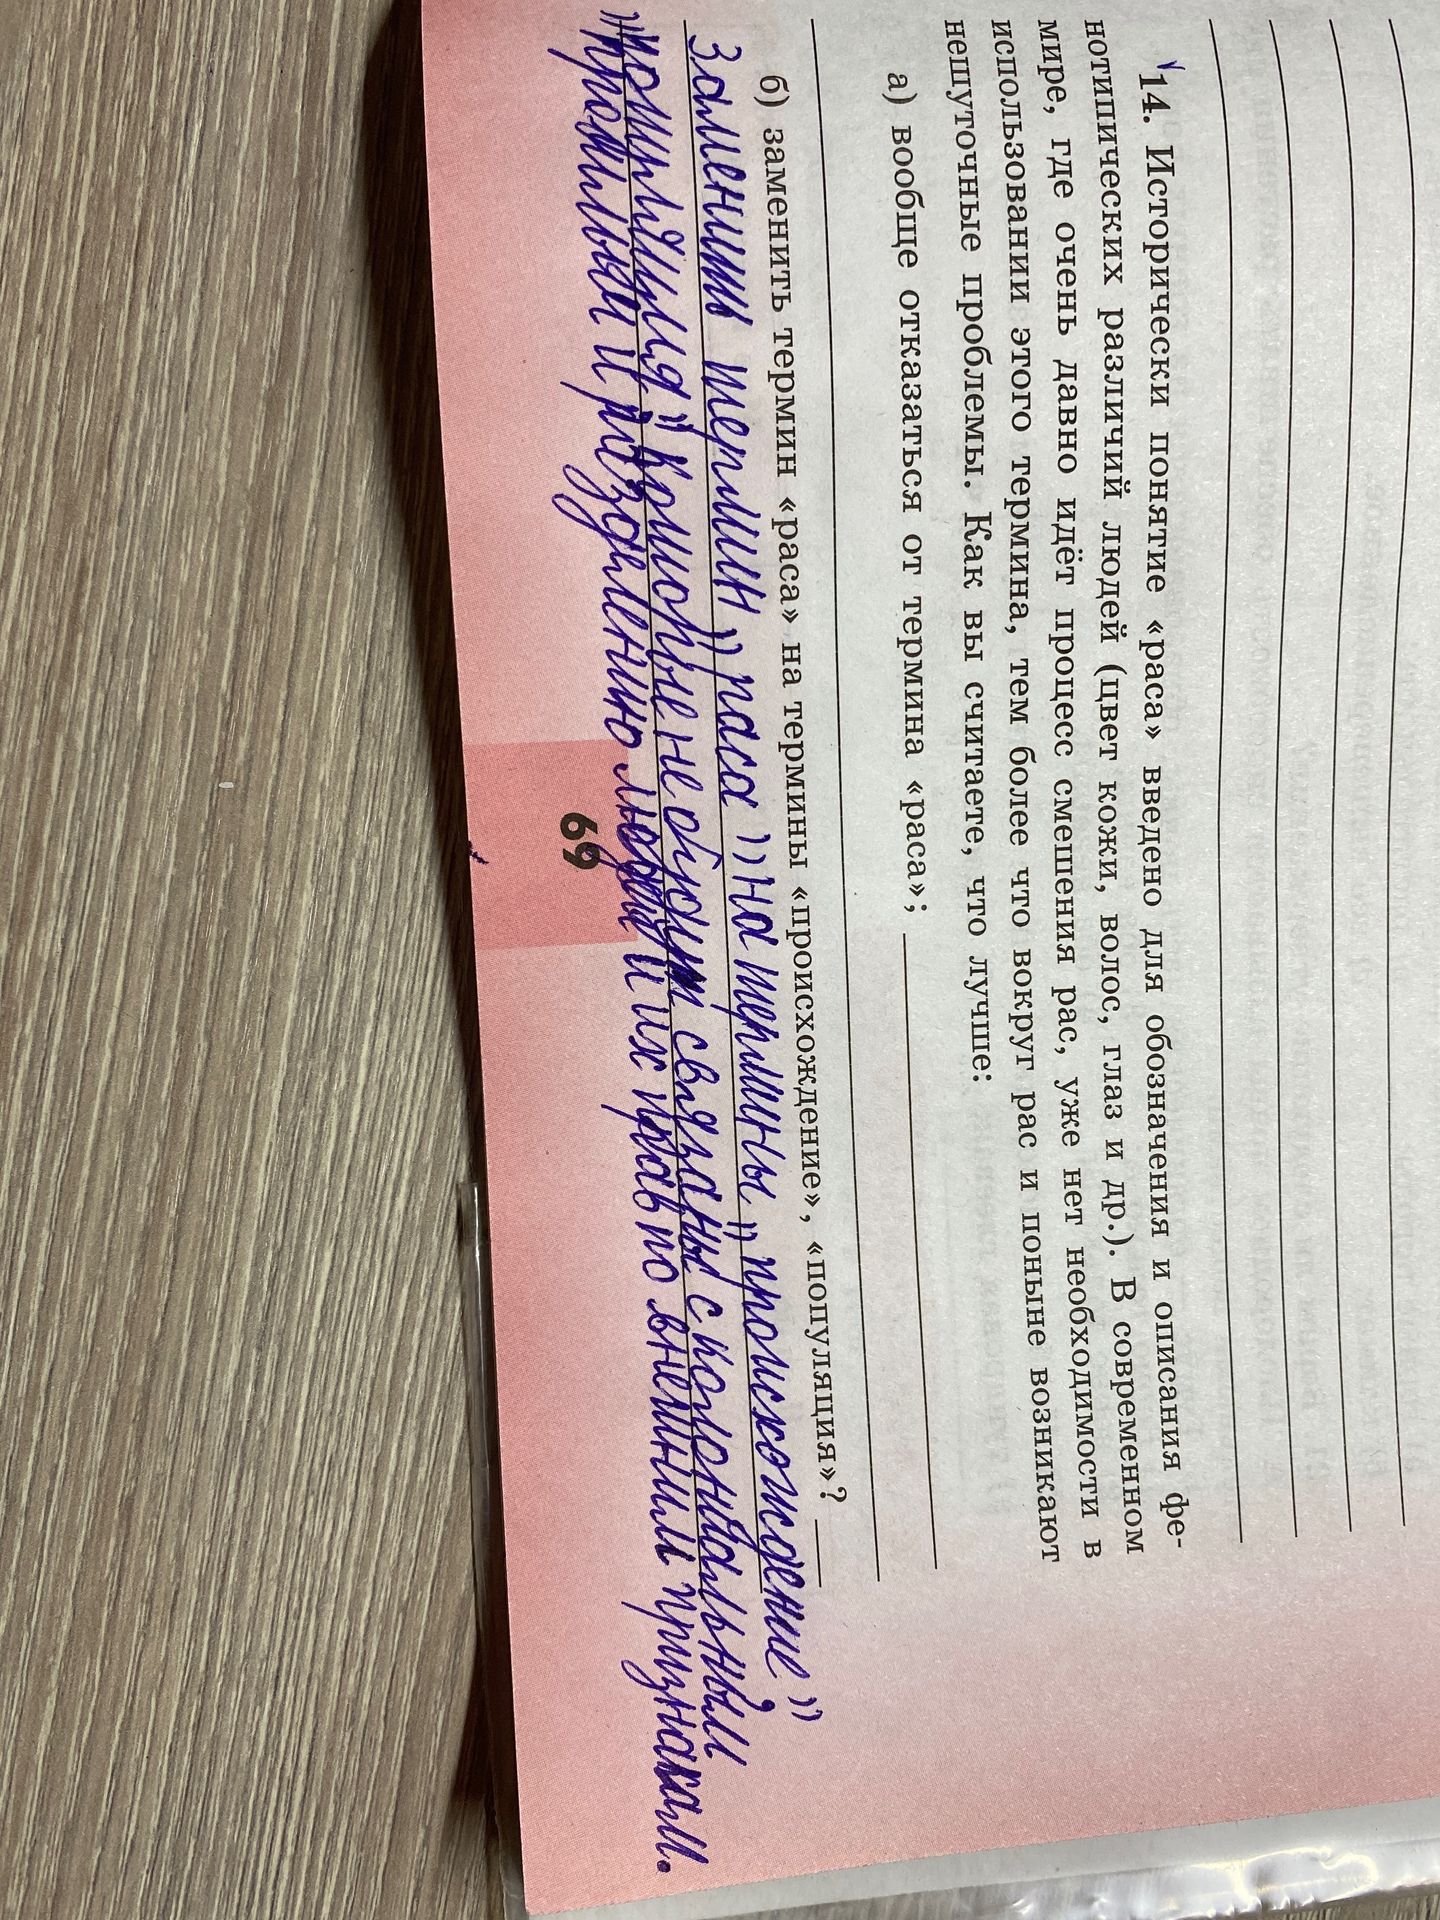 14. Исторически понятие «раса» введено для обозначения и описания фе-
нотипических различий людей (цвет кожи, волос, глаз и др.). В современном
мире, где очень давно идёт процесс смешения рас, уже нет необходимости в
использовании этого термина, тем более что вокруг рас и поныне возникают
нешуточные проблемы. Как вы считаете, что лучше:
а) вообще отказаться от термина «раса»;
б) заменить термин «раса» на термины «происхождение», «популяция»?
Заменить термин "раса" на термины "происхождение"
"популяция" которые не будут связаны с колониальным
прошлым и разделению людей и их прав по внешним признакам.
69